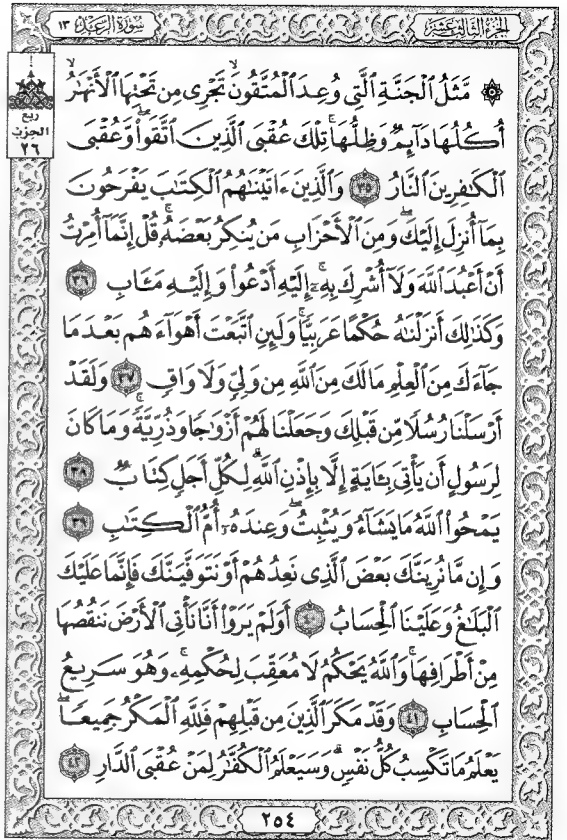 الجزء الثالث عشر
سورة الرعد ١٣
ربع
الحزب
٢٦
۞ مَّثَلُ ٱلْجَنَّةِ ٱلَّتِى وُعِدَ ٱلْمُتَّقُونَ ۖ تَجْرِى مِن تَحْتِهَا ٱلْأَنْهَٰرُ ۖ
أُكُلُهَا دَآئِمٌ وَظِلُّهَا ۚ تِلْكَ عُقْبَى ٱلَّذِينَ ٱتَّقَوا۟ ۖ وَّعُقْبَى
ٱلْكَٰفِرِينَ ٱلنَّارُ ٣٥ وَٱلَّذِينَ ءَاتَيْنَٰهُمُ ٱلْكِتَٰبَ يَفْرَحُونَ
بِمَآ أُنزِلَ إِلَيْكَ ۖ وَمِنَ ٱلْأَحْزَابِ مَن يُنكِرُ بَعْضَهُۥ ۚ قُلْ إِنَّمَآ أُمِرْتُ
أَنْ أَعْبُدَ ٱللَّهَ وَلَآ أُشْرِكَ بِهِۦٓ ۚ إِلَيْهِ أَدْعُوا۟ وَإِلَيْهِ مَـَٔابِ ٣٦
وَكَذَٰلِكَ أَنزَلْنَٰهُ حُكْمًا عَرَبِيًّا ۚ وَلَئِنِ ٱتَّبَعْتَ أَهْوَآءَهُم بَعْدَ مَا
جَآءَكَ مِنَ ٱلْعِلْمِ مَا لَكَ مِنَ ٱللَّهِ مِن وَلِىٍّ وَلَا وَاقٍ ٣٧ وَلَقَدْ
أَرْسَلْنَا رُسُلًا مِّن قَبْلِكَ وَجَعَلْنَا لَهُمْ أَزْوَٰجًا وَذُرِّيَّةً ۚ وَمَا كَانَ
لِرَسُولٍ أَن يَأْتِىَ بِـَٔايَةٍ إِلَّا بِإِذْنِ ٱللَّهِ ۗ لِكُلِّ أَجَلٍ كِتَابٌ ٣٨
يَمْحُوا۟ ٱللَّهُ مَا يَشَآءُ وَيُثْبِتُ ۖ وَعِندَهُۥٓ أُمُّ ٱلْكِتَٰبِ ٣٩
وَإِن مَّا نُرِيَنَّكَ بَعْضَ ٱلَّذِى نَعِدُهُمْ أَوْ نَتَوَفَّيَنَّكَ فَإِنَّمَا عَلَيْكَ
ٱلْبَلَٰغُ وَعَلَيْنَا ٱلْحِسَابُ ٤٠ أَوَلَمْ يَرَوْا۟ أَنَّا نَأْتِى ٱلْأَرْضَ نَنقُصُهَا
مِنْ أَطْرَافِهَا ۚ وَٱللَّهُ يَحْكُمُ لَا مُعَقِّبَ لِحُكْمِهِۦ ۚ وَهُوَ سَرِيعُ
ٱلْحِسَابِ ٤١ وَقَدْ مَكَرَ ٱلَّذِينَ مِن قَبْلِهِمْ فَلِلَّهِ ٱلْمَكْرُ جَمِيعًا ۖ
يَعْلَمُ مَا تَكْسِبُ كُلُّ نَفْسٍ ۗ وَسَيَعْلَمُ ٱلْكُفَّٰرُ لِمَنْ عُقْبَى ٱلدَّارِ ٤٢
٢٥٤